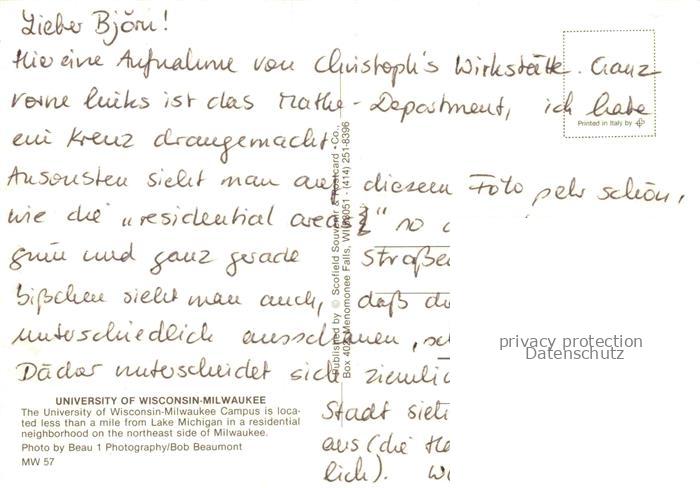 Lieber Björn!
Hier eine Aufnahme von Christoph's Wirkstätte. Ganz
vorne links ist das Mathe-Department, ich habe
ein Kreuz drangemacht.
Ansonsten sieht man auf diesem Foto sehr schön,
wie die "residential areas" so
grün und ganz gerade Straßen
bißchen sieht man auch, daß die
unterschiedlich ausschauen,
Dächer unterscheidet sich ziemlich
Stadt sieht
aus (die
lich).
Printed in Italy by
Published by © Scofield Souvenir & Postcard Co.,
Box 402, Menomonee Falls, WI 53051 - (414) 251-8396
privacy protection
Datenschutz
UNIVERSITY OF WISCONSIN-MILWAUKEE
The University of Wisconsin-Milwaukee Campus is loca-
ted less than a mile from Lake Michigan in a residential
neighborhood on the northeast side of Milwaukee.
Photo by Beau 1 Photography/Bob Beaumont
MW 57